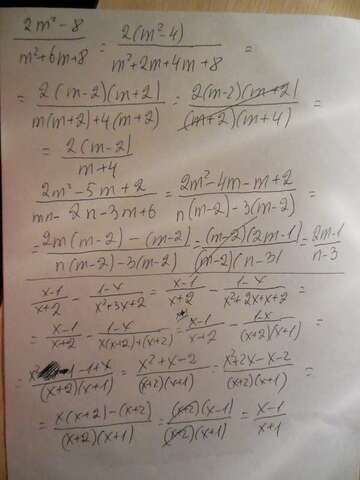 (2m² - 8)/(m² + 6m + 8) = (2(m² - 4))/(m² + 2m + 4m + 8) =
= (2(m - 2)(m + 2))/(m(m + 2) + 4(m + 2)) = (2(m - 2)(m + 2))/((m + 2)(m + 4)) =
= (2(m - 2))/(m + 4)
(2m² - 5m + 2)/(mn - 2n - 3m + 6) = (2m² - 4m - m + 2)/(n(m - 2) - 3(m - 2)) =
= (2m(m - 2) - (m - 2))/(n(m - 2) - 3(m - 2)) = ((m - 2)(2m - 1))/((m - 2)(n - 3)) = (2m - 1)/(n - 3)
(x - 1)/(x + 2) - (1 - x)/(x² + 3x + 2) = (x - 1)/(x + 2) - (1 - x)/(x² + 2x + x + 2) =
= (x - 1)/(x + 2) - (1 - x)/(x(x + 2) + (x + 2)) = (x - 1)/(x + 2) - (1 - x)/((x + 2)(x + 1)) =
= (x² - 1 - 1 + x)/((x + 2)(x + 1)) = (x² + x - 2)/((x + 2)(x + 1)) = (x² + 2x - x - 2)/((x + 2)(x + 1)) =
= (x(x + 2) - (x + 2))/((x + 2)(x + 1)) = ((x + 2)(x - 1))/((x + 2)(x + 1)) = (x - 1)/(x + 1)